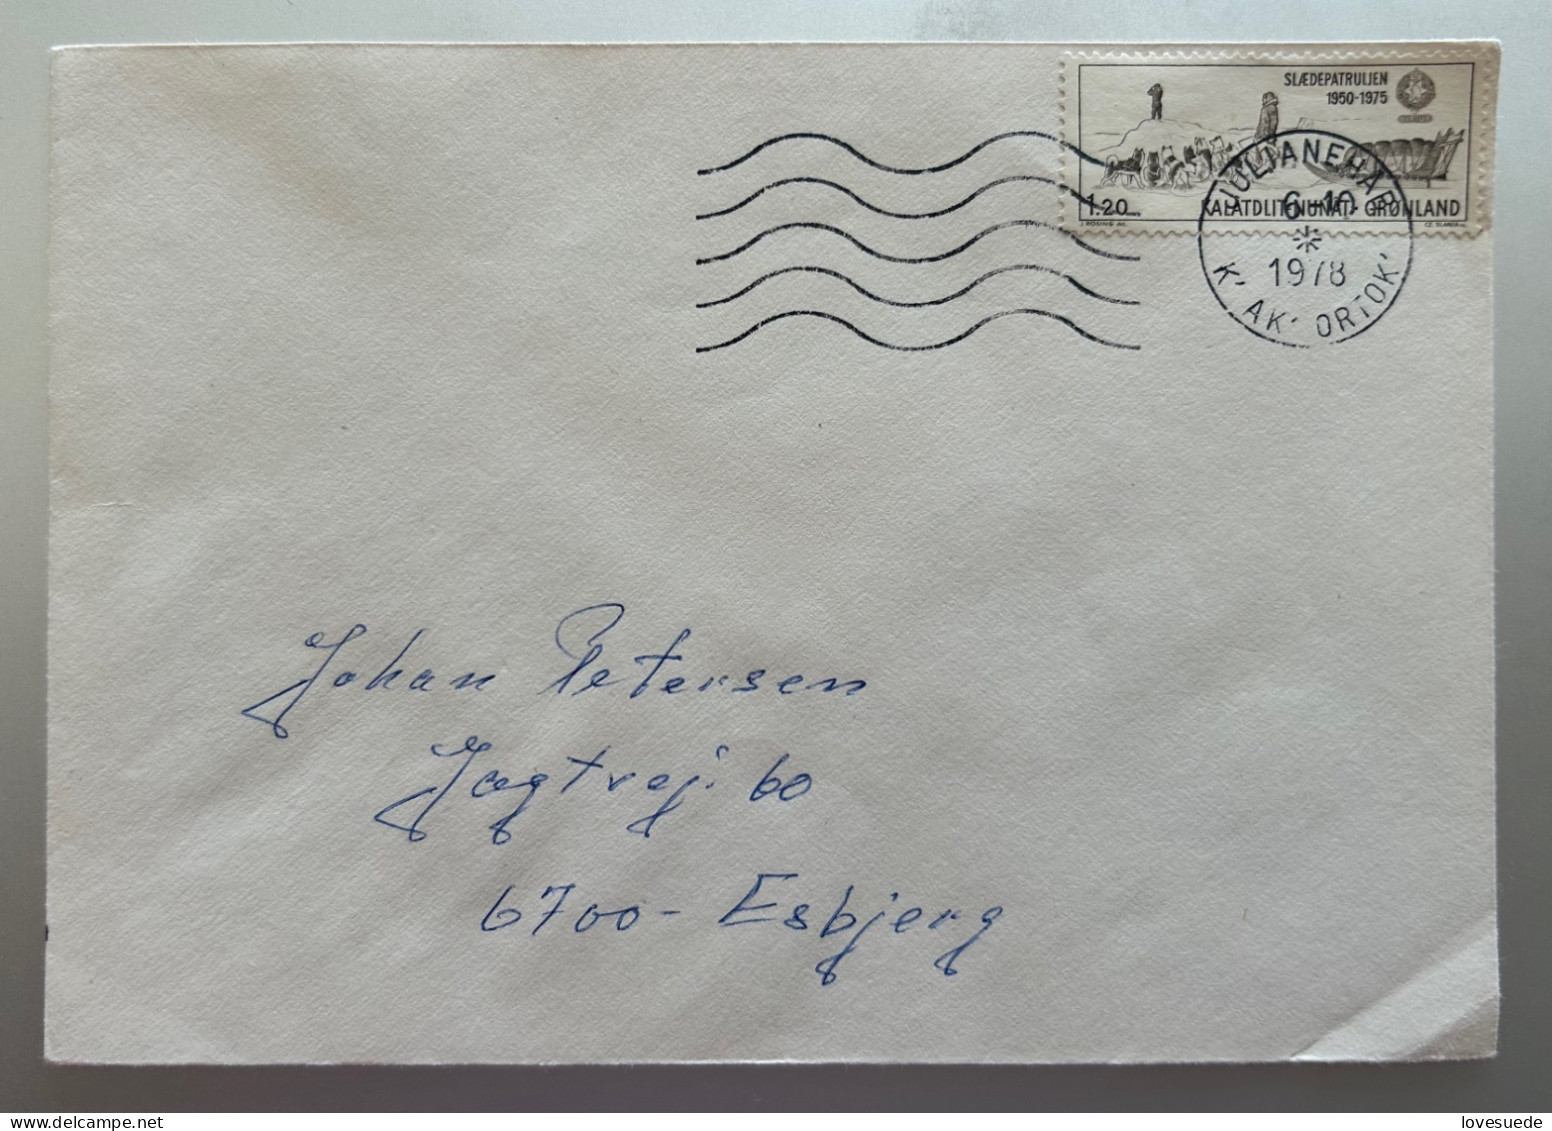 SLÆDEPATRULJEN
1950-1975
1.20 KALÂTDLIT NUNÂT GRØNLAND
JULIANEHÅB
6-10
1978
K' AK' ORTOK'
Johan Petersen
Jagtvej. 60
6700 - Esbjerg
lovesuede